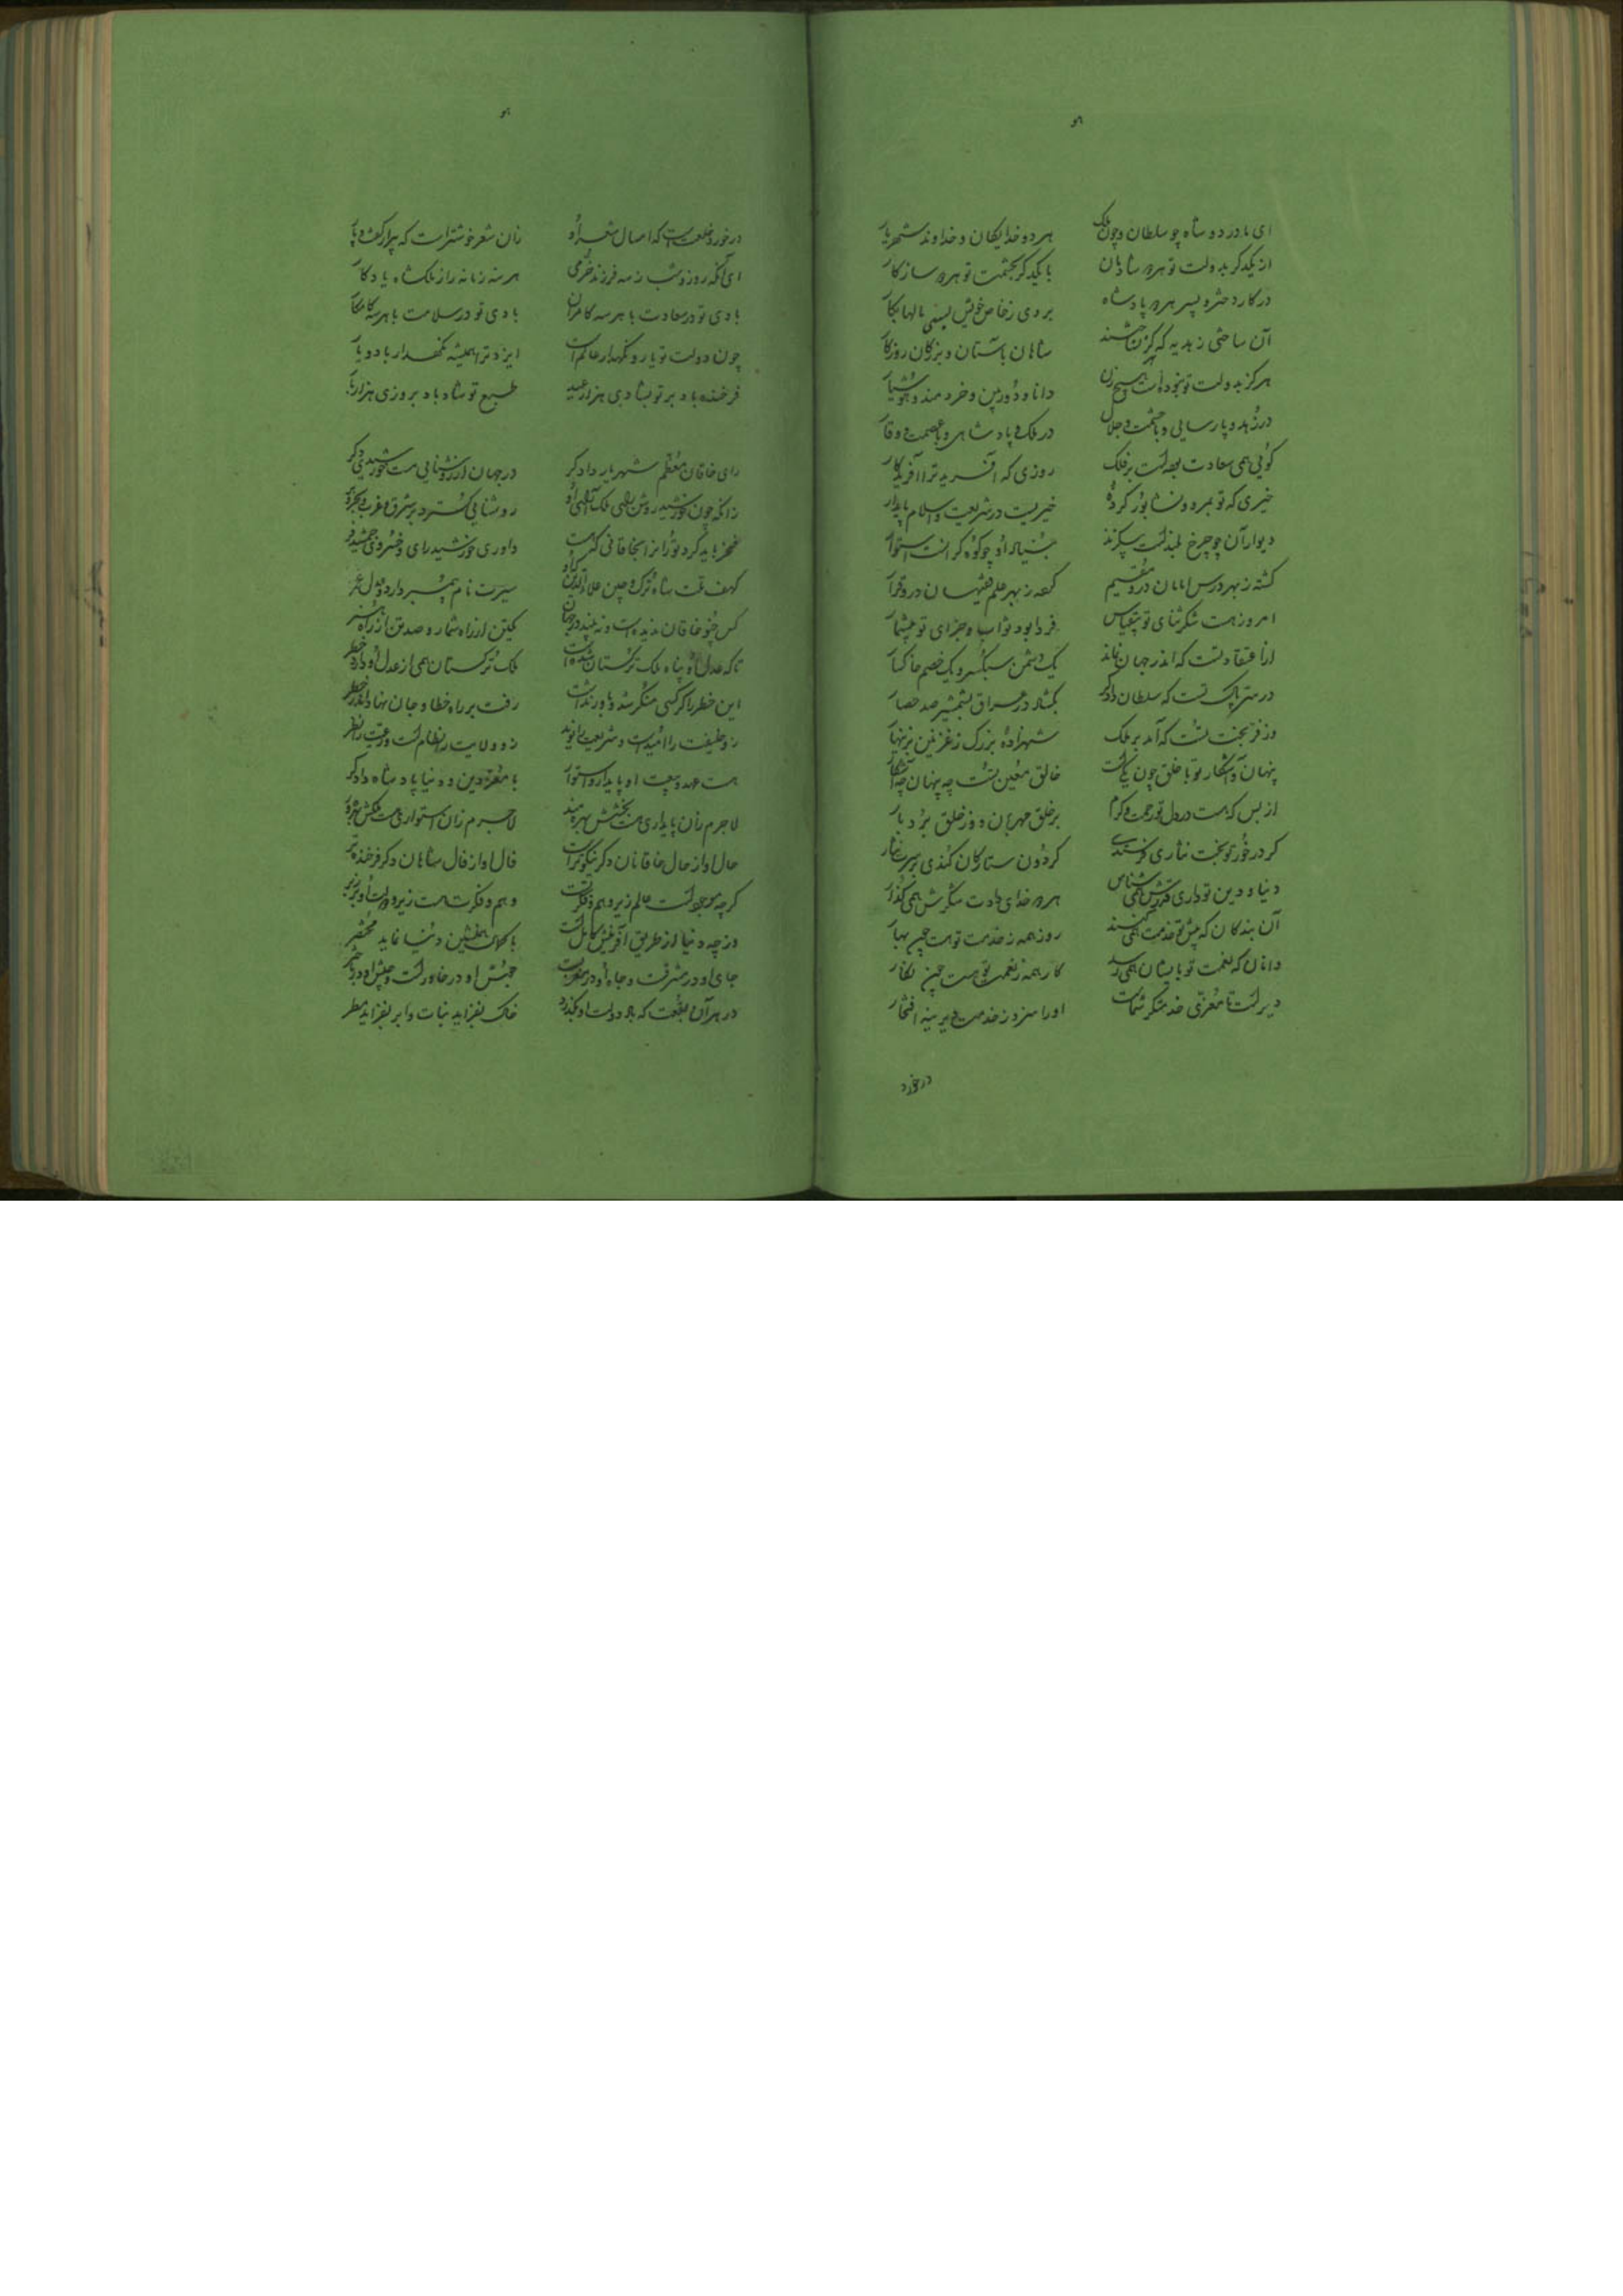 هو
ای مادر دو شاه چو سلطان و چون ملک هر دو خدایکان و خداوند شهریار
از یکدکر بدولت تو هر دو شادمان با یکدکر بحشمت تو هر دو سازکار
در کار دختر و پسر هر دو پادشاه بردی ز خاص خویش بسی مالها بکار
آن ساختی ز هدیه که هرکز نساختند شاهان باستان و بزرکان روزکار
هرکز بدولت تو نبوده است هیچ زن دانا و دوربین و خردمند و هوشیار
در زهد و پارسایی و با حشمت و جلال در ملک و پادشاهی و با عصمت و وقار
کوئی همی سعادت بصلت بر فلک روزی که آفرید ترا آفریدکار
خیری که تو بمرو و نشابور کردهٔ خیریست در شریعت و اسلام پایدار
دیوار آن چو چرخ بلندست بی کزند بنیاد او چو کوه کرانست استوار
کشته ز بهر درس امامان درو مقیم کرده ز بهر علم فقیهان درو قرار
امروز هست شکر و ثنای تو بی قیاس فردا بود ثواب و جزای تو بیشمار
از اعتقاد تست که اندر جهان نماند یک دشمن سبکسر و یک خصم خاکسار
در همت پاک تست که سلطان دادکر بکشاد در عراق بشمشیر صد حصار
وز فر بخت تست که آمد بر ملک شهزاده بزرک ز غزنین بزینهار
پنهان و آشکار تو با خلق چون یکیست خالق معین تست چه پنهان چه آشکار
از بس که هست در دل تو رحمت و کرم بر خلق مهربان و ز خلق بردبار
کر در خور تو بخت نثاری فرستدی کردون ستارکان کندی بر سرت نثار
دنیا و دین تو داری قدرش همی شناس هر دو خدای دادت شکرش همی کذار
آن بندکان که پیش تو خدمت همی کنند روز همه ز خدمت تو هست چون بهار
وانان که نعمت تو بایشان همی رسد کار همه ز نعمت تو هست چون نکار
دیرست تا معزی خدمتکر شماست او را سزد ز خدمت دیرینه افتخار
در خورد
هو
در خورد خلعتست که امسال شعر او زان شعر خوشترست که پیرار کفت و پار
ای آنکه روز و شب ز سه فرزند خرمی هر سه زمانه را ز ملکشاه یادکار
بادی تو در سعادت با هر سه کامران بادی تو در سلامت با هر سه کامکار
چون دولت تو یار و نکهدار عالم است ایزد ترا همیشه نکهدار باد و یار
فرخنده باد بر تو بشادی هزار عید طبع تو شاد باد بروزی هزار بار
رای خاقان معظم شهریار دادکر در جهان از روشنایی هست خورشیدی دکر
زانکه چون خورشید روشن رای ملک آرای او روشنایی کسترد بر شرق و غرب و بحر و بر
فخر باید کرد توران را بخاقانی کهست داوری خورشید رای و خسروی جمشید فر
کهف امت شاه ترک و چین علاءالدین که او سیرت نام پیمبر دارد و عدل عمر
کس چو خاقان ندیده است و نه بیند در جهان یکتن از راه شمار و صد تن از راه هنر
تا که عدل او پناه ملک ترکستان شدست ملک ترکستان همی از عدل او دارد خطر
این خطر را کر کسی منکر شد و باور نداشت رفت بر راه خطا و جان نهاد اندر خطر
زو خلیفت را امیدست و شریعت را نوید زو ولایت را نظام است و رعیت را نظر
هست عهد و بیعت او پایدار و استوار با معز دین و دنیا پادشاه دادکر
لاجرم زان پایداری هست بختش بهره مند لاجرم زان استواری هست ملکش بهره ور
حال او از حال خاقانان دکر نیکوترست فال او از فال شاهان دکر فرخنده تر
کرچه موجودست عالم زیر وهم و فکرتست وهم و فکرت هست زیر و دولت او بر زبر
ورچه دنیا از طریق آفرینش کاملست با کمال بخشش دنیا نماید مختصر
جای او در مشرقست و جاه او در مغربست جنبش او در خاورست و جیش او در باختر
در هر آن بقعت که باد دولت او بکذرد خاک بفزاید نبات و ابر بفزاید مطر